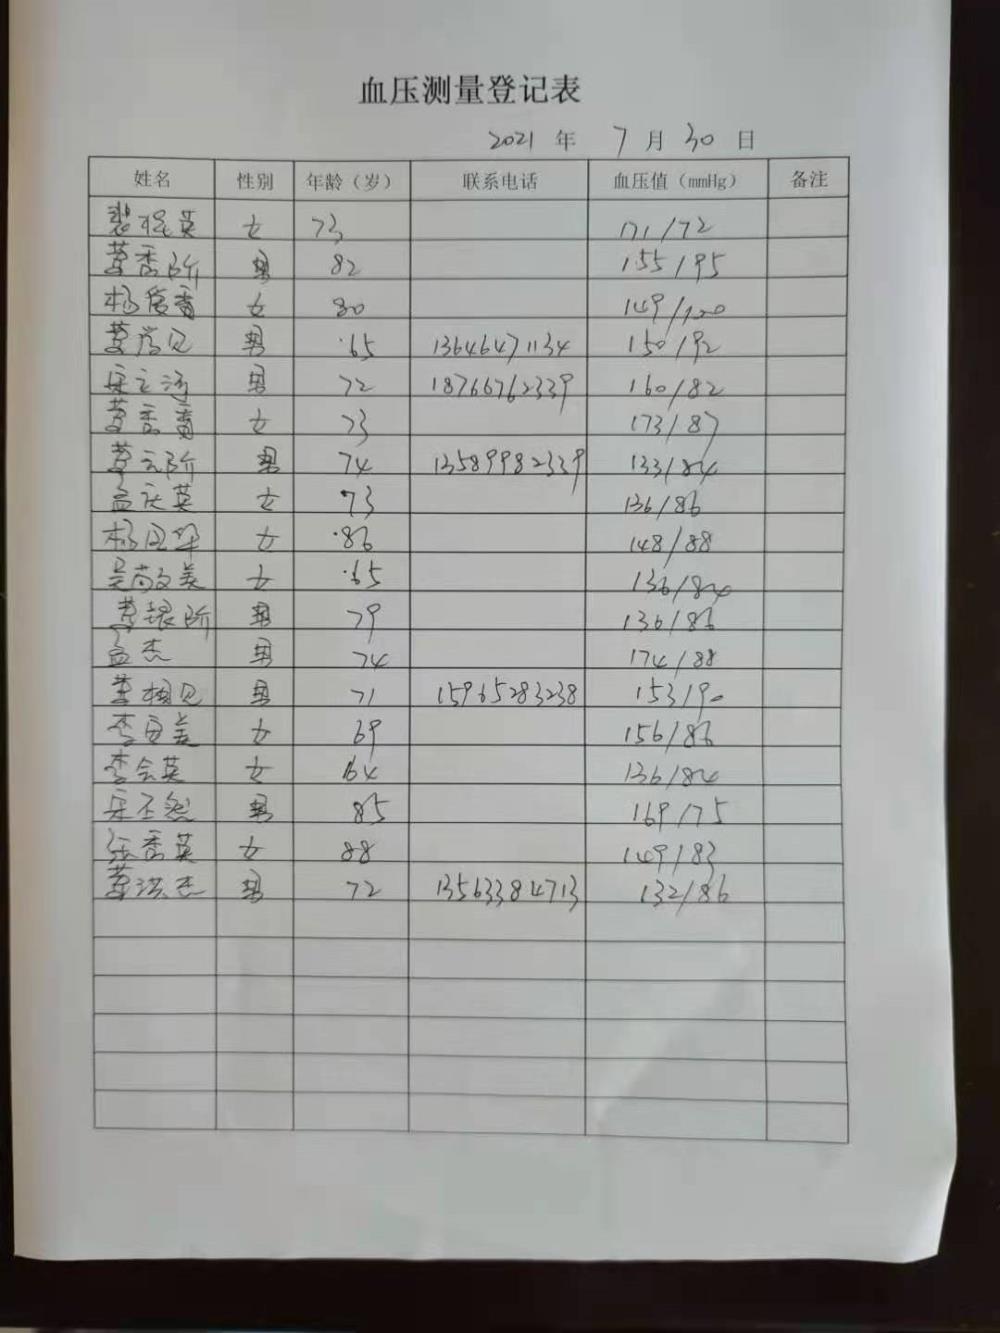 血压测量登记表
2021 年 7 月 30 日
姓名 性别 年龄（岁） 联系电话 血压值（mmHg） 备注
英 女 73 171/72
秀阶 男 82 155/95
杨 香 女 80 149/100
见 男 65 13646471134 150/92
宋立 男 72 18766762339 160/82
秀 女 73 173/87
元阶 男 74 13589982339 133/84
孟庆英 女 73 136/86
杨 华 女 86 148/88
吴 美 女 65 136/84
银阶 男 79 136/86
孟杰 男 74 174/88
相见 男 71 15965283238 153/90
李 美 女 69 156/86
李会英 女 64 136/84
宋 男 85 169/75
张秀英 女 88 149/83
洪杰 男 72 13563384713 132/86